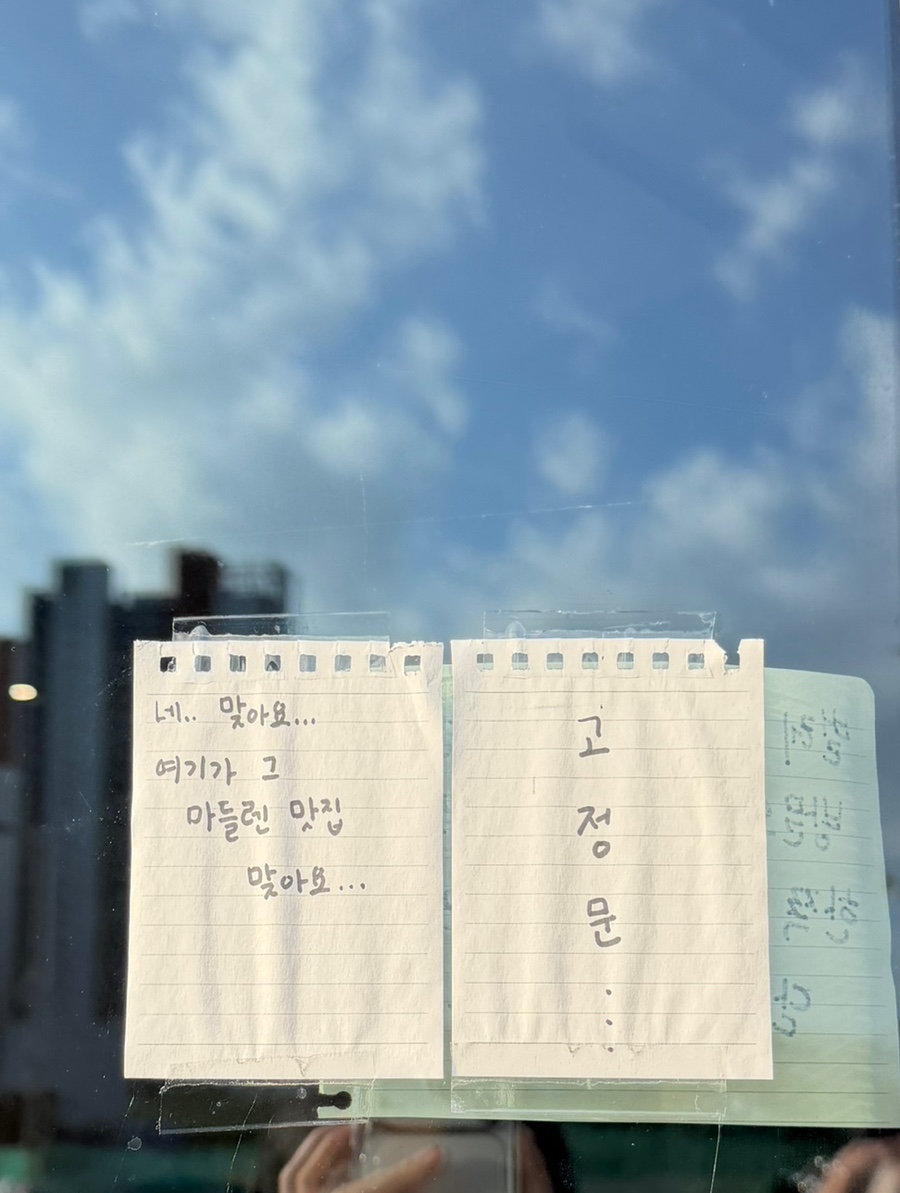 네.. 맞아요...
여기가 그
마들렌 맛집
맞아요...
고
정
문
: